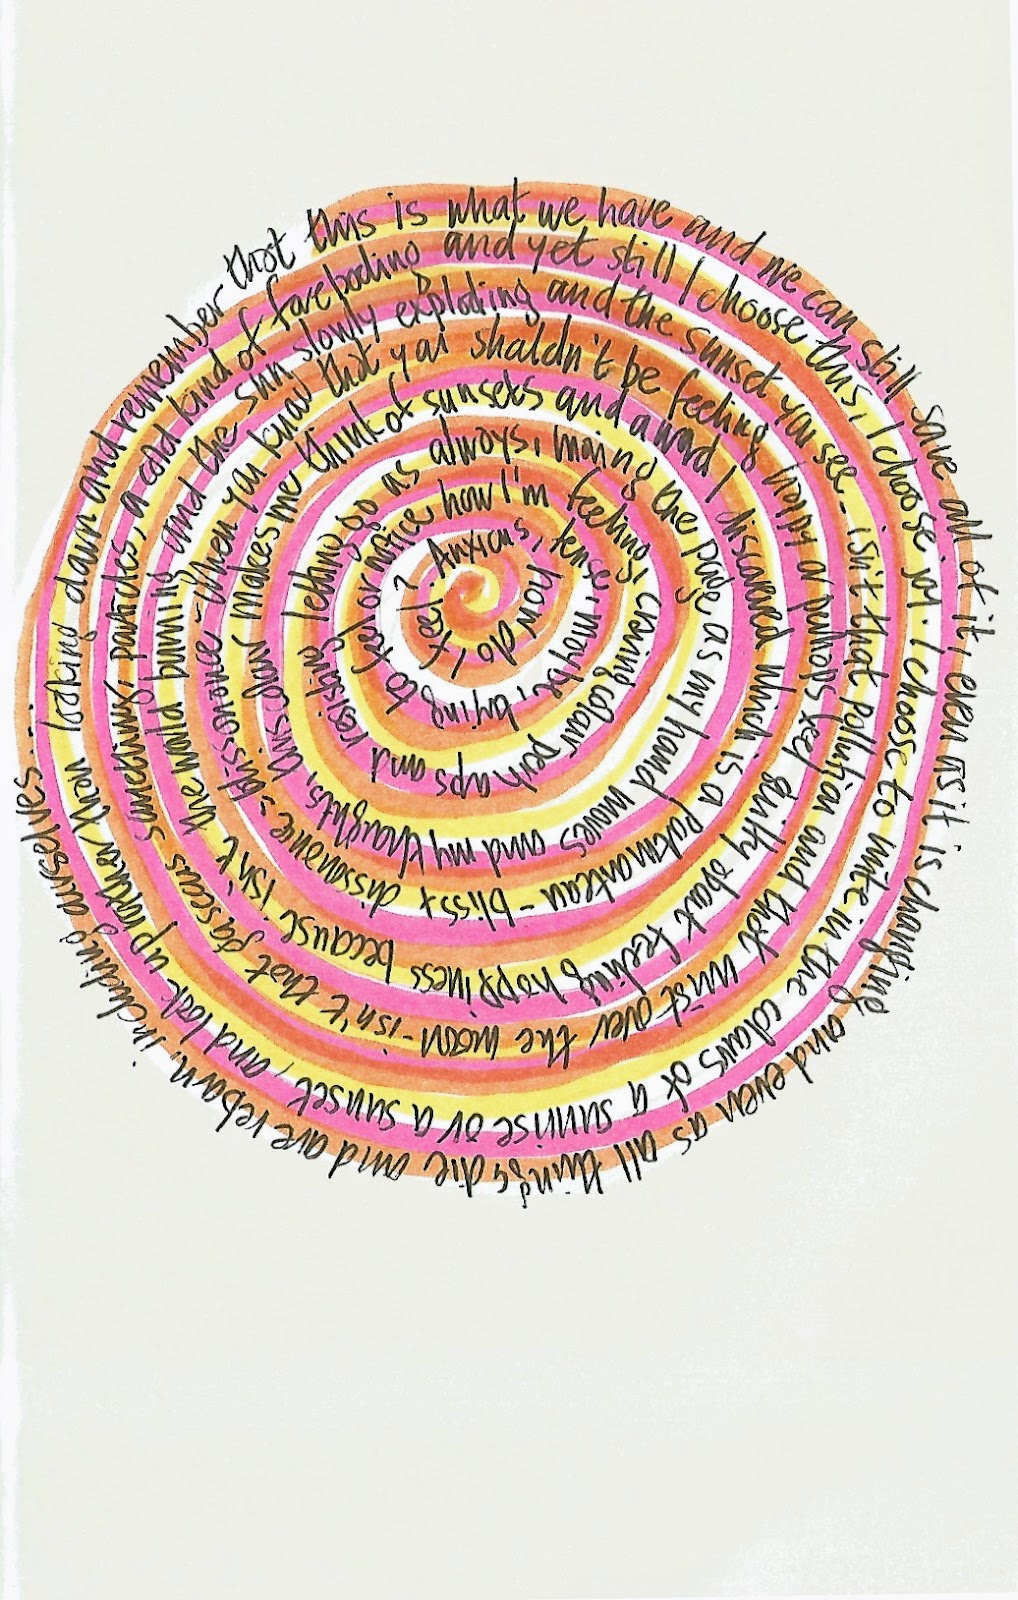 how do I feel? Anxious, tense, maybe, trying to feel or notice how I'm feeling, craving colour perhaps and resisting letting go as always, moving the page as my hand moves and my thoughts in this colour makes me think of sunsets and a word I discovered which is a portmanteau - bliss x dissonance = blissonance - when you know that you shouldn't be feeling happy or perhaps feel guilty about feeling happiness because isn't the world burning and the sun slowly exploding and the sunset you see - isn't that pollution and that mist over the moon - isn't that gaseous particles, a cold kind of foreboding and yet still I choose this, I choose joy. I choose to invite in the colours of a sunrise or a sunset, and look up rather than looking down and remember that this is what we have and we can still save all of it, even as it is changing and even as all things die and are reborn, including ourselves...